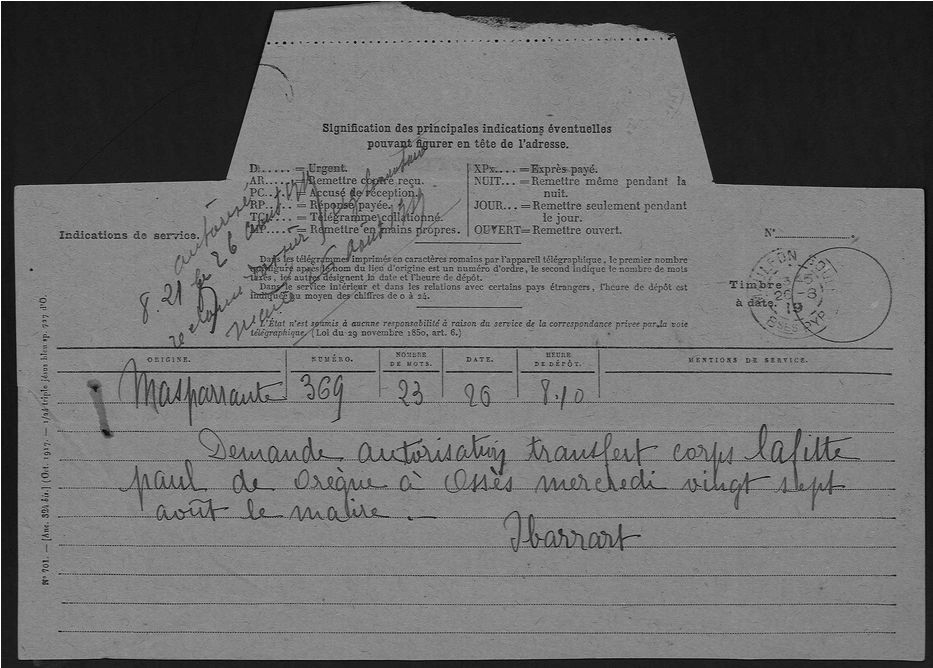 Signification des principales indications éventuelles
pouvant figurer en tête de l'adresse.
D..... = Urgent.
AR..... = Remettre contre reçu.
PC..... = Accusé de réception.
RP..... = Réponse payée.
TC..... = Télégramme collationné.
MP..... = Remettre en mains propres.
XPx.... = Exprès payé.
NUIT... = Remettre même pendant la
nuit.
JOUR... = Remettre seulement pendant
le jour.
OUVERT = Remettre ouvert.
Indications de service.
autorisé
8.21 26 août 1919
N°
Timbre
à date.
26-8
19
Bses PYR
Dans les télégrammes imprimés en caractères romains par l'appareil télégraphique, le premier nombre
qui figure après le nom du lieu d'origine est un numéro d'ordre, le second indique le nombre de mots
taxés, les autres désignent la date et l'heure de dépôt.
Dans le service intérieur et dans les relations avec certains pays étrangers, l'heure de dépôt est
indiquée au moyen des chiffres de 0 à 24.
L'État n'est soumis à aucune responsabilité à raison du service de la correspondance privée par la voie
télégraphique. (Loi du 29 novembre 1850, art. 6.)
ORIGINE. NUMÉRO. NOMBRE DE MOTS. DATE. HEURE DE DÉPÔT. MENTIONS DE SERVICE.
Masparraute 369 23 26 8.10
Demande autorisation transfert corps lafitte
paul de Orègue à Ossès mercredi vingt sept
août le maire. —
Ibarrart
N° 701. — [Anc. 324 bis.] (Oct. 1917. — 1/24 triple jésus bleu sp. 727 d'O.